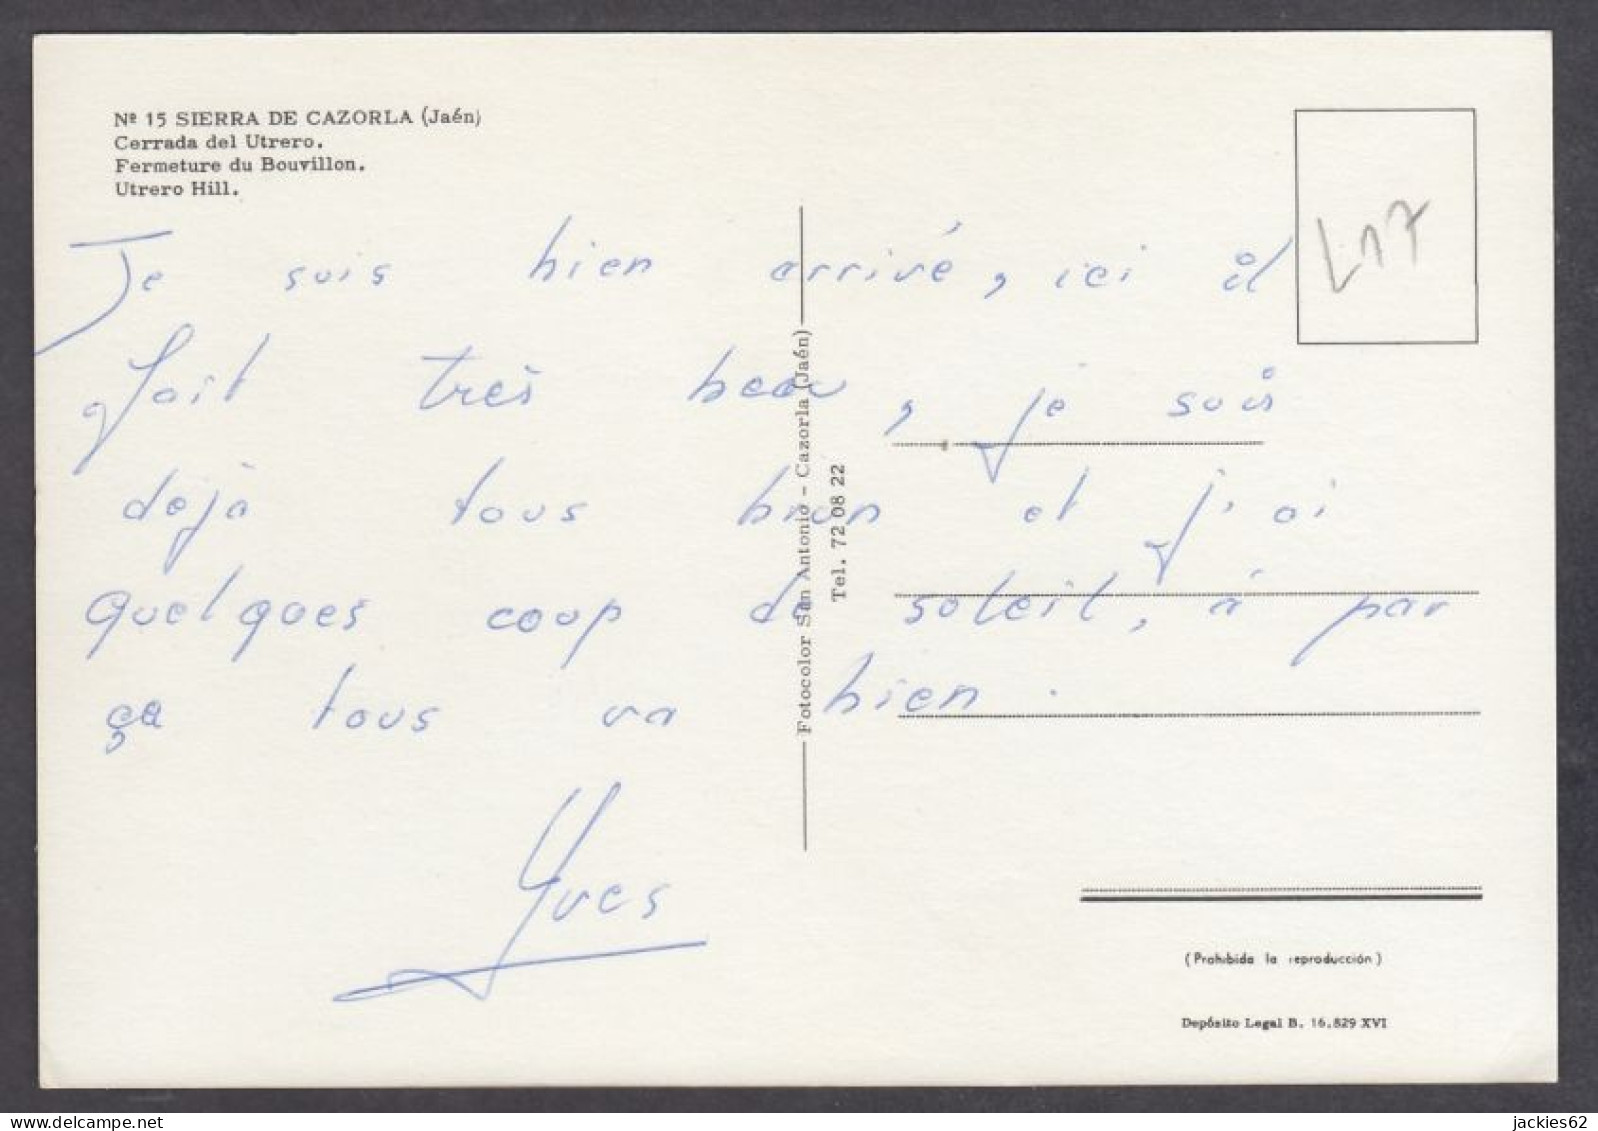 Nº 15 SIERRA DE CAZORLA (Jaén)
Cerrada del Utrero.
Fermeture du Bouvillon.
Utrero Hill.
Je suis bien arrivé, ici il
fait très beau, je suis
dejà tous brun et j'ai
quelques coup de soleil, à par
ça tous va bien.
Yves
Fotocolor San Antonio - Cazorla (Jaén)
Tel. 72 08 22
L17
(Prohibida la reproducción)
Depósito Legal B. 16.829 XVI
jackies62